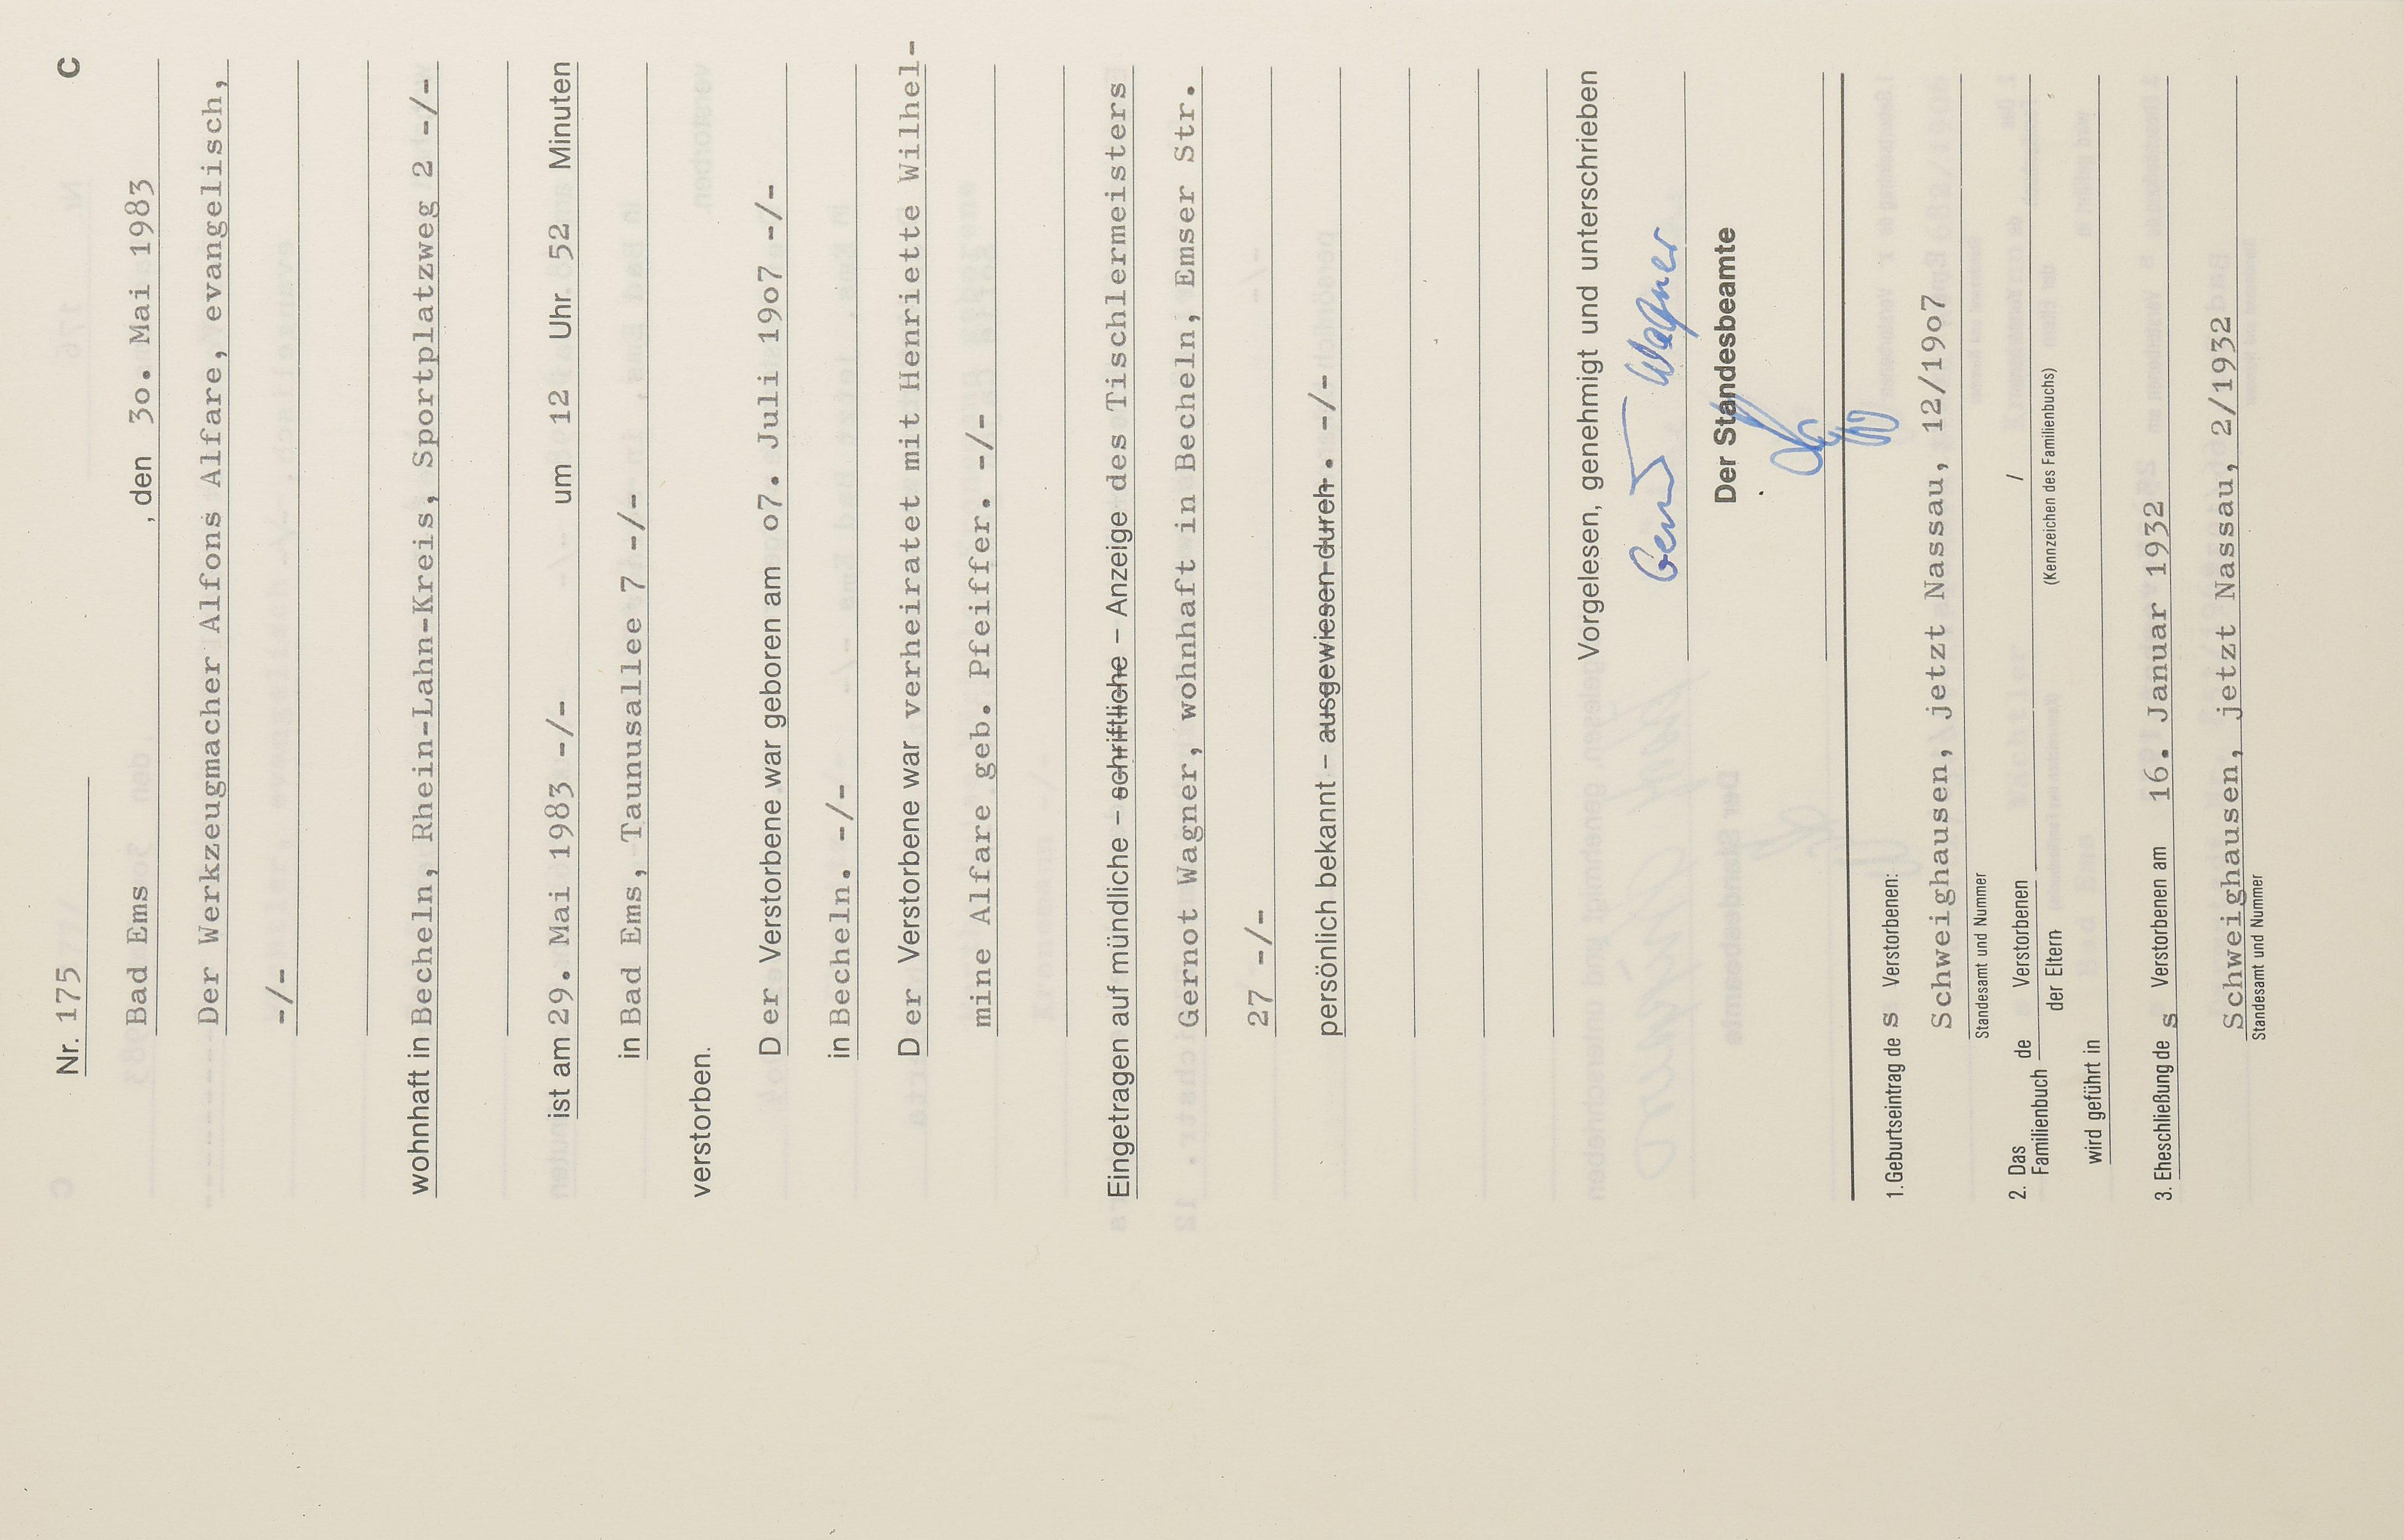 Nr. 175 C
Bad Ems , den 3o. Mai 1983
Der Werkzeugmacher Alfons Alfare, evangelisch,
-/-
wohnhaft in Becheln, Rhein-Lahn-Kreis, Sportplatzweg 2 -/-
ist am 29. Mai 1983 -/- um 12 Uhr 52 Minuten
in Bad Ems, Taunusallee 7 -/-
verstorben.
D er Verstorbene war geboren am o7. Juli 19o7 -/-
in Becheln. -/-
D er Verstorbene war verheiratet mit Henriette Wilhel-
mine Alfare geb. Pfeiffer. -/-
Eingetragen auf mündliche – schriftliche – Anzeige des Tischlermeisters
Gernot Wagner, wohnhaft in Becheln, Emser Str.
27 -/-
persönlich bekannt – ausgewiesen durch. -/-
Vorgelesen, genehmigt und unterschrieben
Gernot Wagner
Der Standesbeamte
1. Geburtseintrag de s Verstorbenen:
Schweighausen, jetzt Nassau, 12/19o7
Standesamt und Nummer
2. Das Familienbuch de Verstorbenen /
der Eltern (Kennzeichen des Familienbuchs)
wird geführt in
3. Eheschließung de s Verstorbenen am 16. Januar 1932
Schweighausen, jetzt Nassau, 2/1932
Standesamt und Nummer